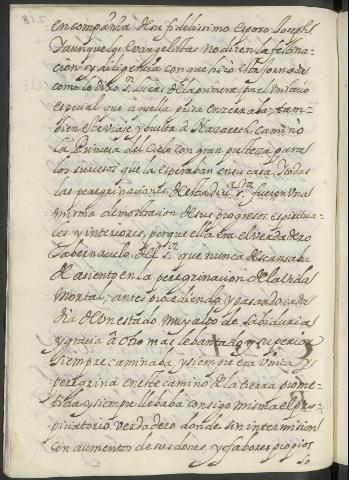 en compañia de su fidelissimo esposo Joseph.
Y aunque los Evangelistas no dicen la festina-
cion y diligencia con que hiço esta jornada
como lo dixo S. Lucas de la primera por el misterio
especial que aquella prisa encerraba; tam-
bien este viaje y vuelta a Nazareth camino
la Princesa del Cielo con gran presteza para
los sucesos que la esperaban en su casa. Y todas
las peregrinaciones de esta diu.ª S.ª fueron una
misma demostracion de sus progresos espiritua-
les y interiores, porque ella era el verdadero
tabernaculo del S.or que nunca descansaba
de asiento en la peregrinacion de la vida
mortal; antes procediendo y pasando cada
dia de un estado muy alto de sabiduria
y gracia a otro mas lebantado y superior
siempre caminaba, y siempre era unica y
peregrina en este camino de la tierra prome-
tida y siempre llebaba consigo misma el pro-
piciatorio verdadero donde sin intermision
con aumentos de sus dones, y fabores propios
so